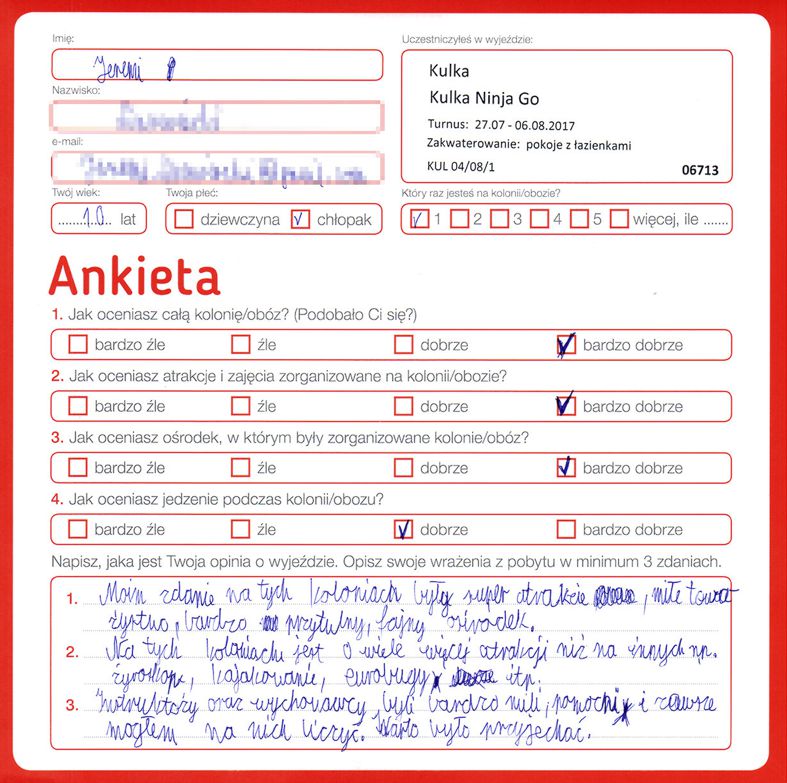 Imię:
Jeremi
Nazwisko:
e-mail:
Twój wiek:
10 lat
Twoja płeć:
dziewczyna chłopak
Uczestniczyłeś w wyjeździe:
Kulka
Kulka Ninja Go
Turnus: 27.07 - 06.08.2017
Zakwaterowanie: pokoje z łazienkami
KUL 04/08/1 06713
Który raz jesteś na kolonii/obozie?
1 2 3 4 5 więcej, ile .......
Ankieta
1. Jak oceniasz całą kolonię/obóz? (Podobało Ci się?)
bardzo źle źle dobrze bardzo dobrze
2. Jak oceniasz atrakcje i zajęcia zorganizowane na kolonii/obozie?
bardzo źle źle dobrze bardzo dobrze
3. Jak oceniasz ośrodek, w którym były zorganizowane kolonie/obóz?
bardzo źle źle dobrze bardzo dobrze
4. Jak oceniasz jedzenie podczas kolonii/obozu?
bardzo źle źle dobrze bardzo dobrze
Napisz, jaka jest Twoja opinia o wyjeździe. Opisz swoje wrażenia z pobytu w minimum 3 zdaniach.
1. Moim zdanie na tych koloniach były super atrakcie, miłe towa
żyrtwo, bardzo przytulny, fajny ośrodek.
2. Na tych koloniach jest o wiele więcej atrakcji niż na innych np.
żyroskop, kajakowanie, eurobugy itp.
3. Instruktorzy oraz wychowawcy byli bardzo mili, pomocni i zawsze
mogłem na nich liczyć. Warto było przyjechać.